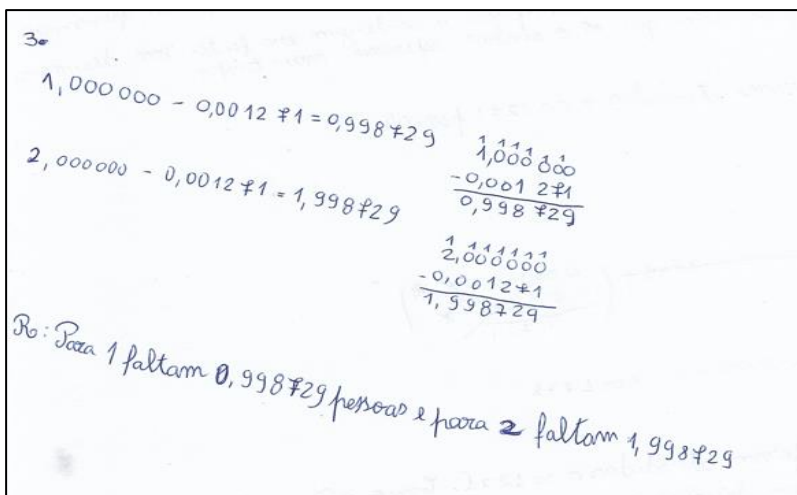 3.
1,000000 - 0,001271 = 0,998729
1 1 1 1 1 1
1,000000
-0,001 271
0,998 729
2,000000 - 0,001271 = 1,998729
1 1 1 1 1 1 1
2,000000
-0,001271
1,998729
R: Para 1 faltam 0,998729 pessoas e para 2 faltam 1,998729